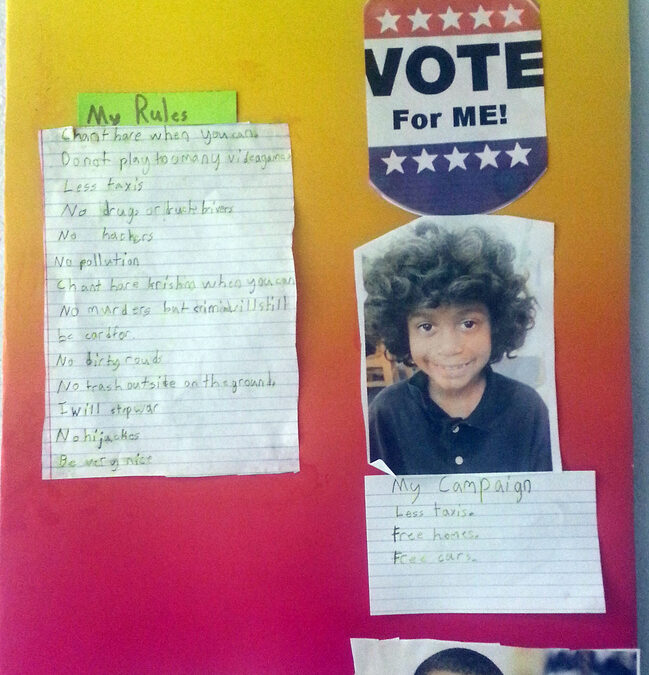 My Rules
Chant hare when you can.
Do not play too many videogames
Less taxis
No drugs or drivers
No hackers
No pollution
Chant hare krishna when you can
No murders but criminal will still
be card for.
No dirty roads
No trash outside on the ground.
I will stop war
No hijackes
Be very nice
VOTE
For ME!
My Campaign
Less taxis.
Free homes.
Free cars.